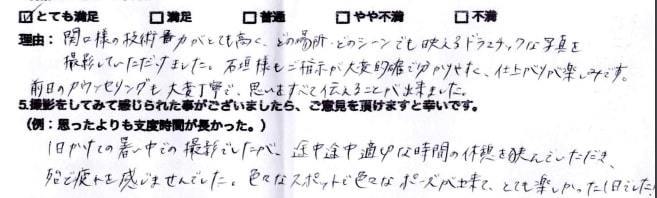 ☑ とても満足 □ 満足 □ 普通 □ やや不満 □ 不満
理由：関口様の技術力がとても高く、どの場所・どのシーンでも映えるドラマチックな写真を
撮影していただけました。石垣様もご指示が大変的確で分かりやすく、仕上がりが楽しみです。
前日のカウンセリングも大変丁寧で、思いをすべて伝えることが出来ました。
5.撮影をしてみて感じられた事がございましたら、ご意見を頂けますと幸いです。
(例：思ったよりも支度時間が長かった。)
1日かけての暑い中での撮影でしたが、途中途中適切な時間の休憩を挟んでいただき、
殆ど疲れを感じませんでした。色々なスポットで色々なポーズが出来て、とても楽しかった1日でした!